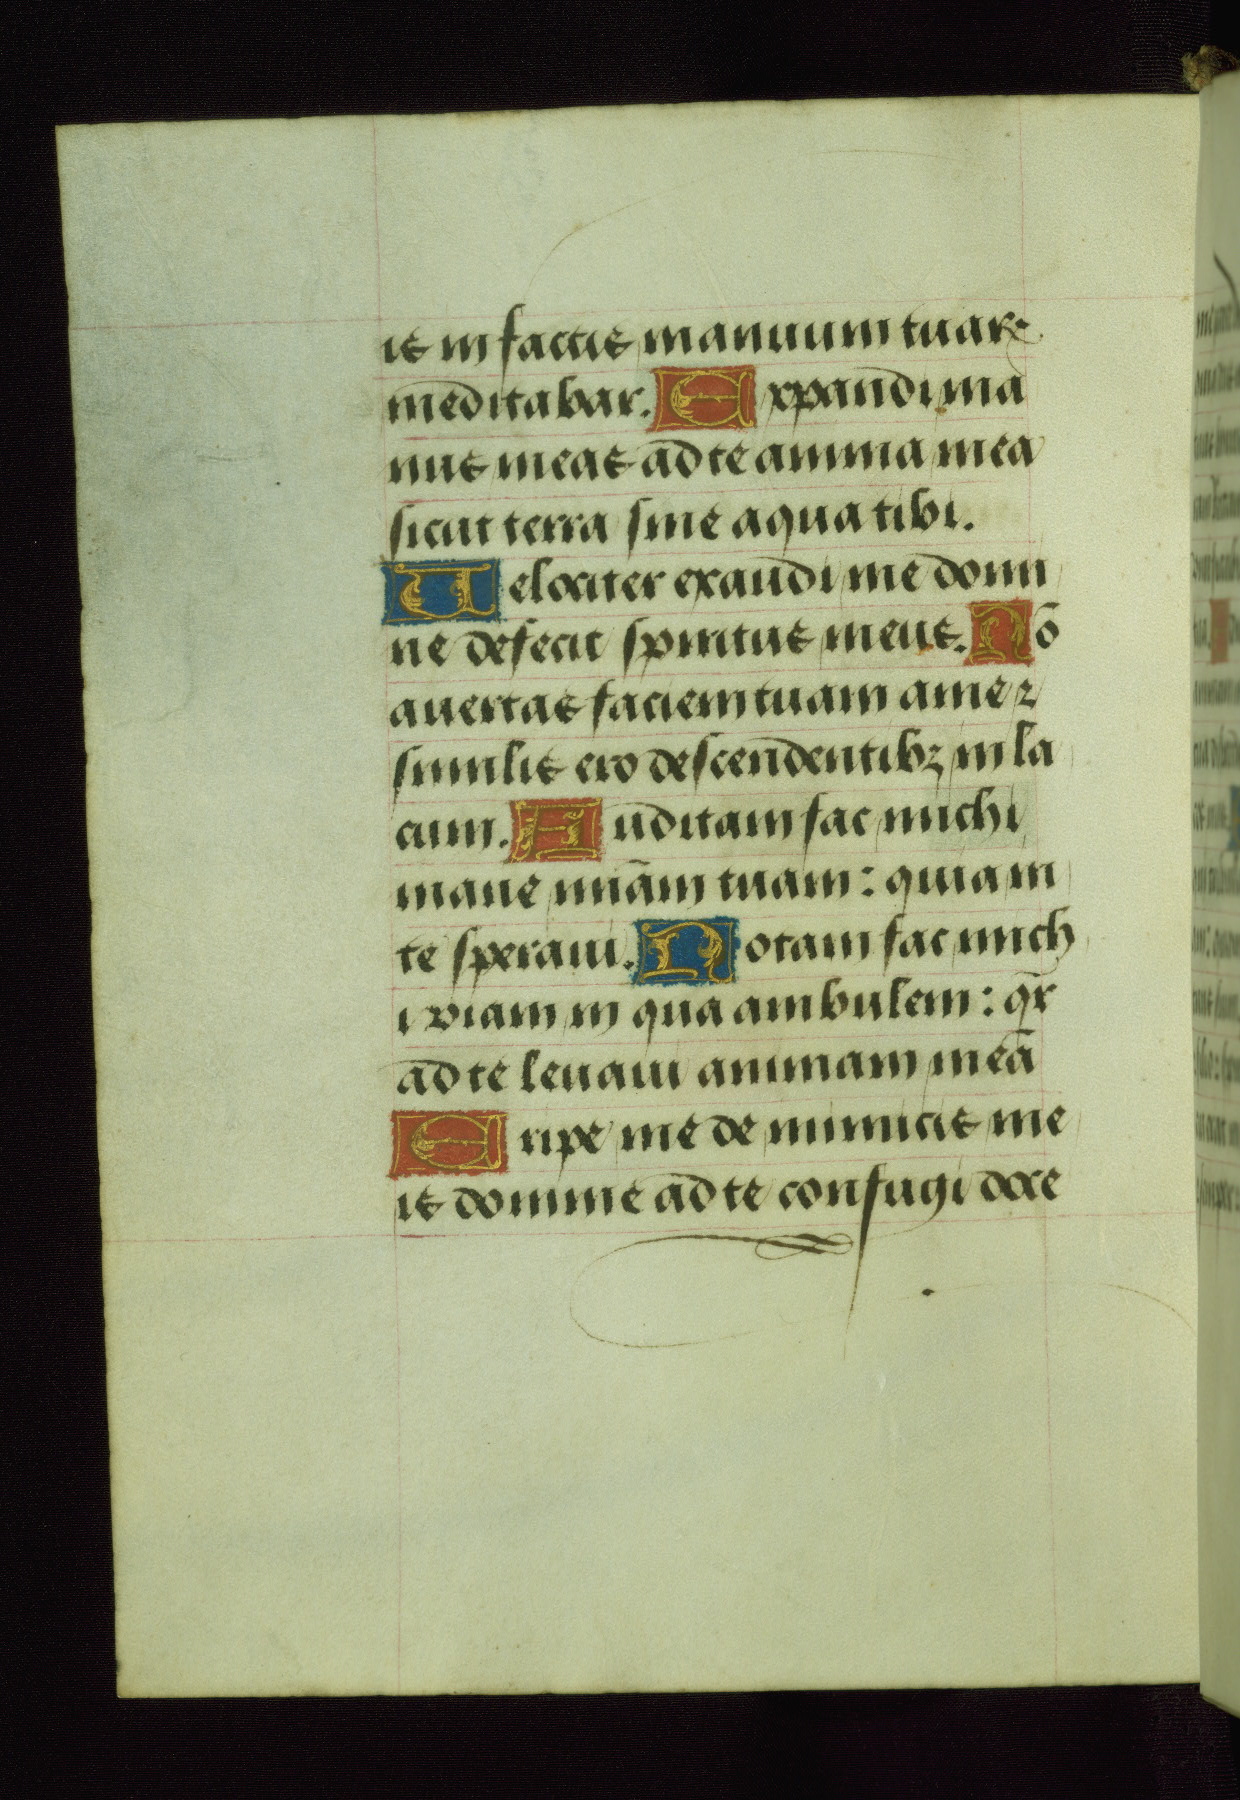 is in factis manuum tuaꝝ
meditabar. Expandi ma
nus meas ad te anima mea
sicut terra sine aqua tibi.
Velociter exaudi me domi
ne defecit spiritus meus. Nō
auertas faciem tuam a me ⁊
similis ero descendentibꝫ in la
cum. Auditam fac michi
mane mīam tuam: quia in
te speraui. Notam fac mich
i viam in qua ambulem: qr̄
ad te leuaui animam meā
Eripe me de inimicis me
is domine ad te confugi doce